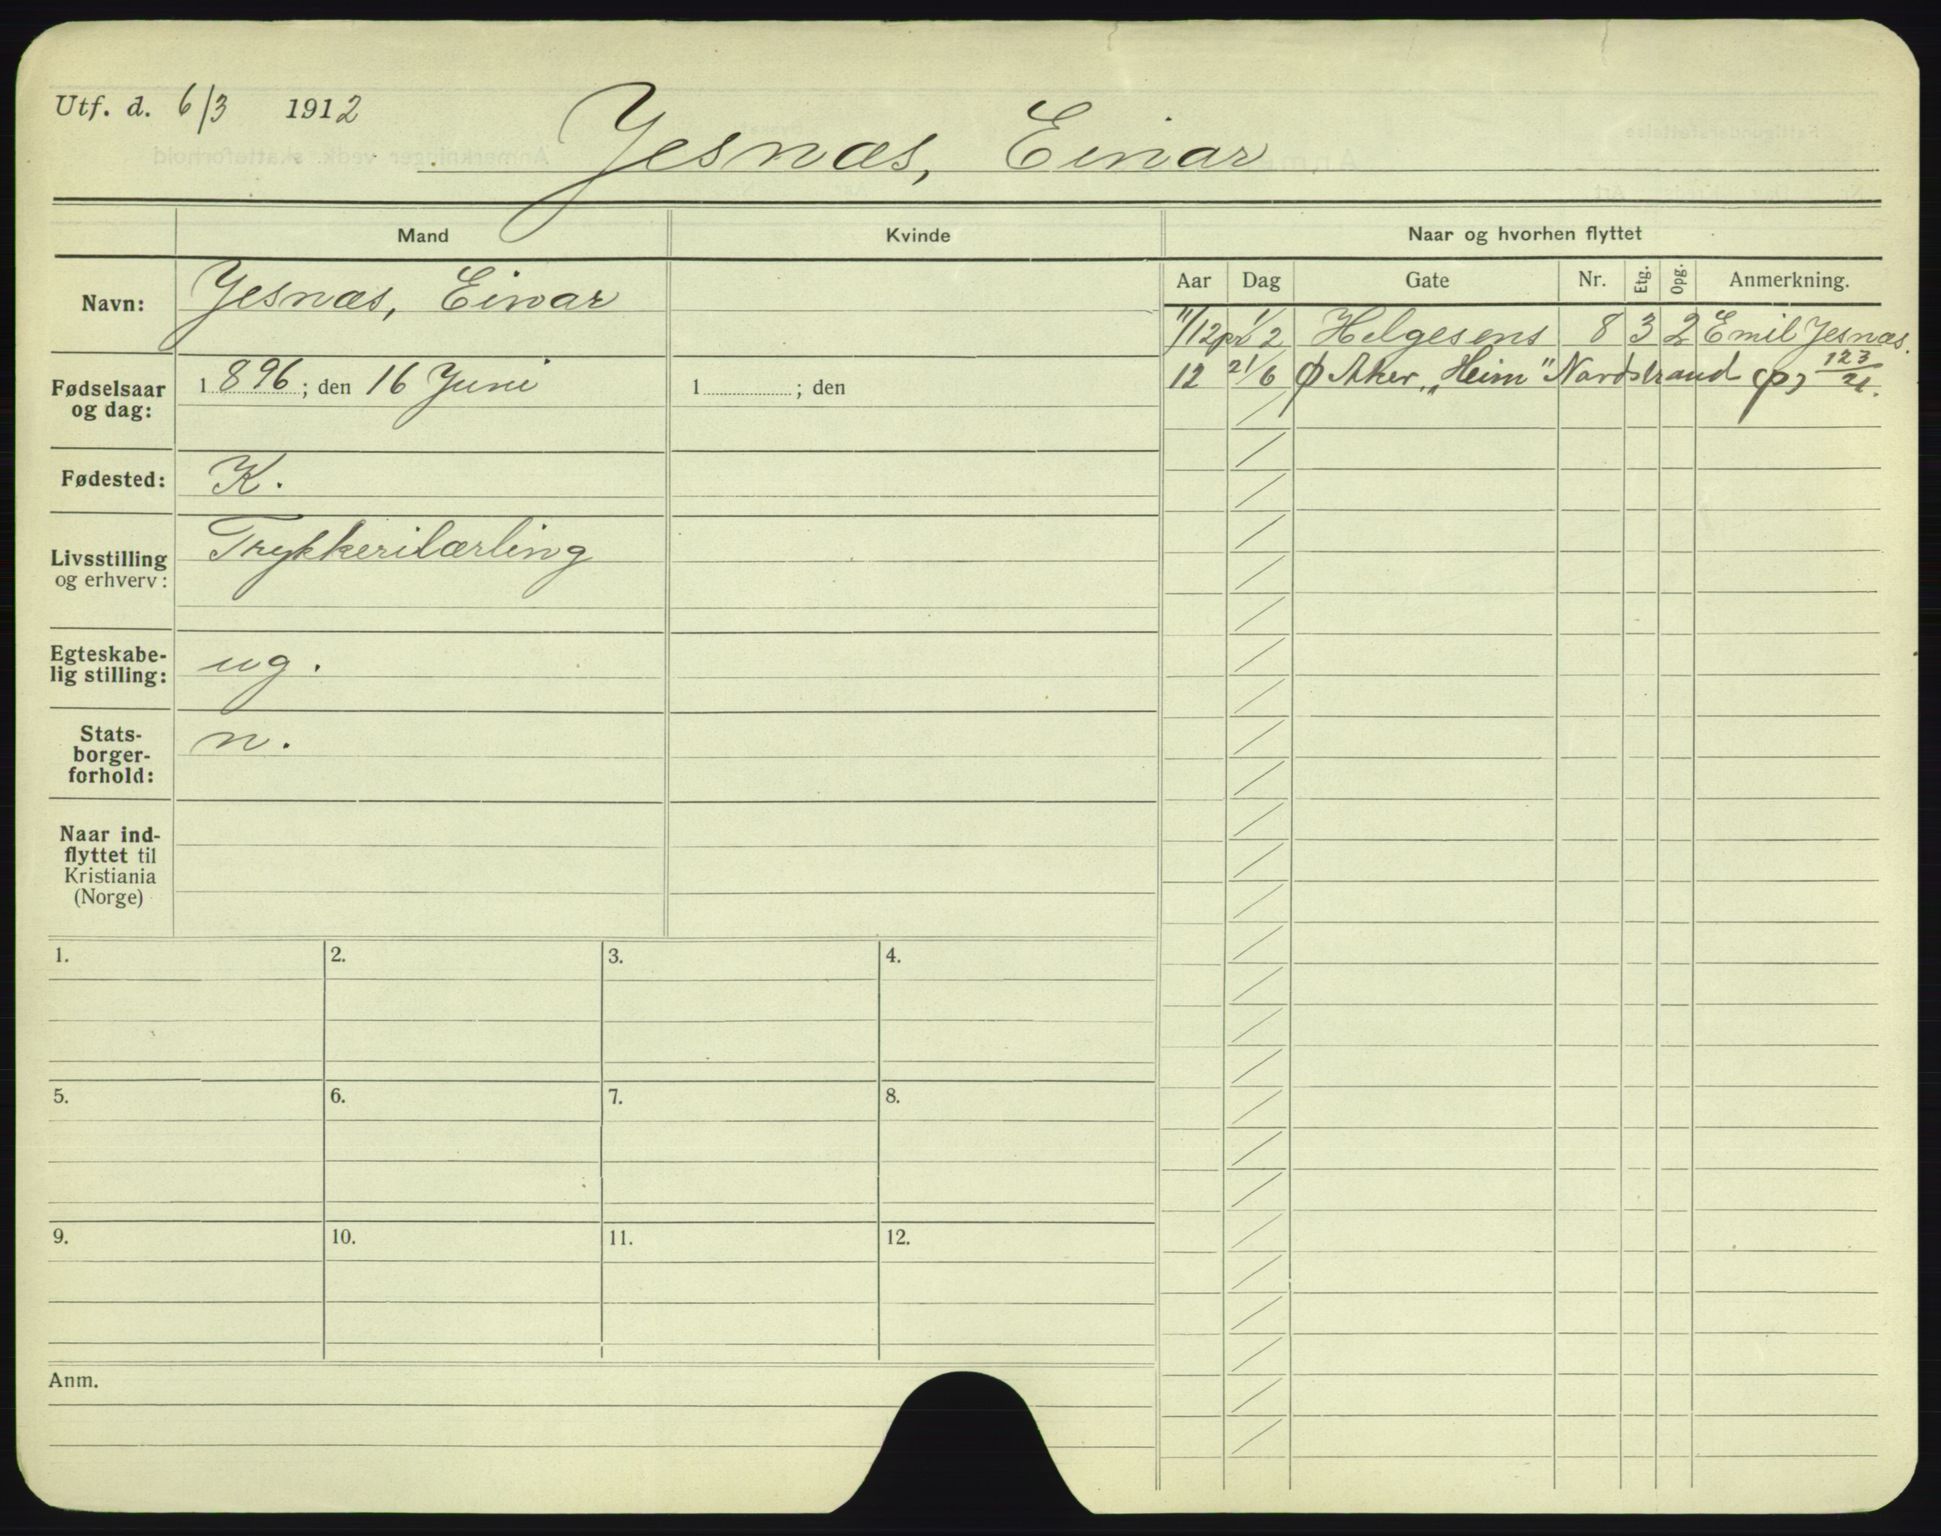 Utf. d. 6/3 1912
Yesnæs, Einar
Mand
Kvinde
Naar og hvorhen flyttet
Navn:
Yesnæs, Einar
Aar Dag Gate Nr. Etg. Opg. Anmerkning.
11/12 pr 1/2 Helgesens 8 3 2 Emil Yesnæs.
12 21/6 Ø Aker „Heim" Nordstrand 123/21.
Fødselsaar
og dag:
1896; den 16 Juni
1 ; den
Fødested:
K.
Livsstilling
og erhverv:
Trykkerilærling
Egteskabe-
lig stilling:
ug.
Stats-
borger-
forhold:
n.
Naar ind-
flyttet til
Kristiania
(Norge)
1. 2. 3. 4.
5. 6. 7. 8.
9. 10. 11. 12.
Anm.